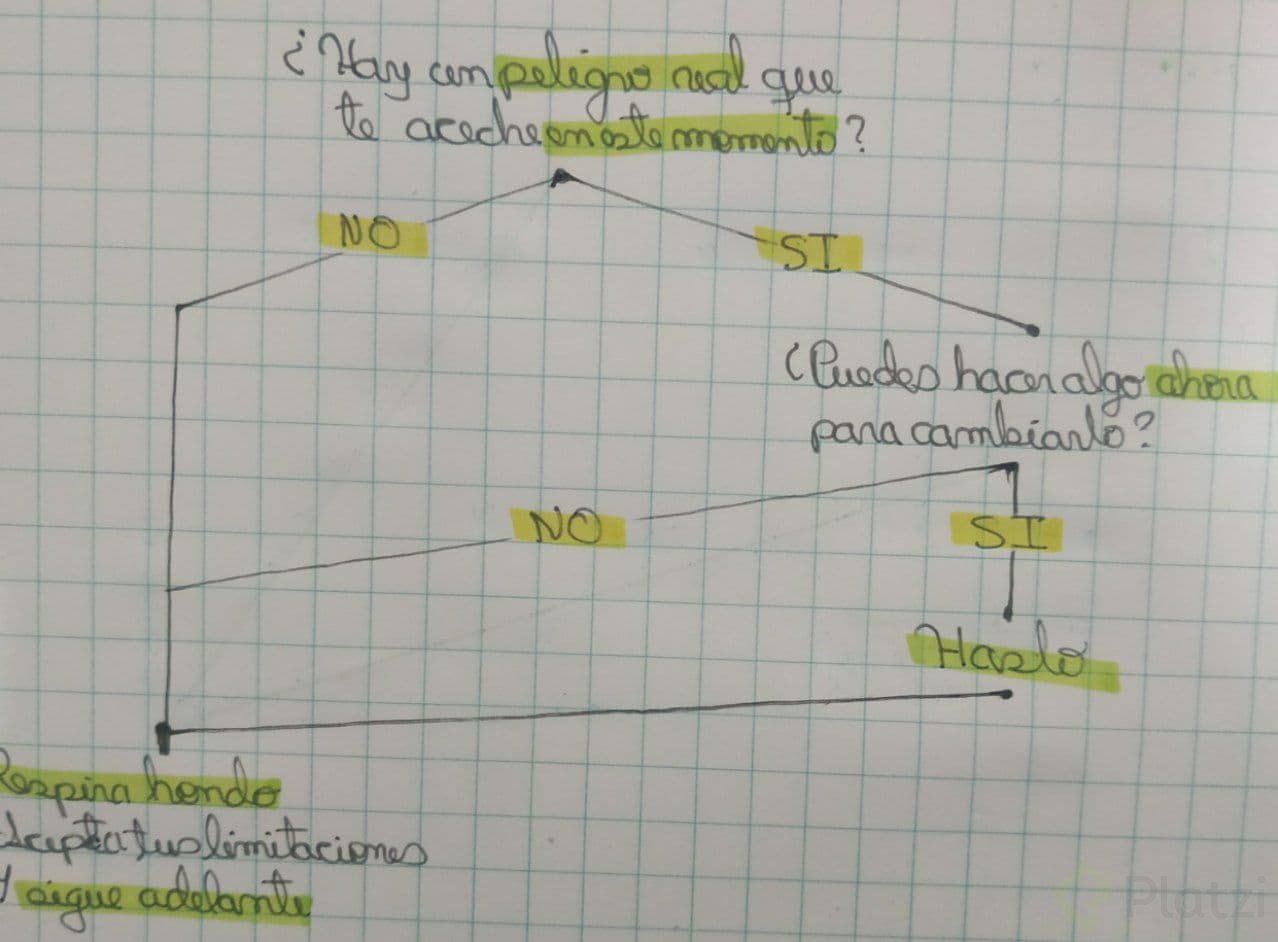 ¿Hay un peligro real que
te aceche en este momento?
NO
SI
¿Puedes hacer algo ahora
para cambiarlo?
NO
SI
Hazlo
Respira hondo
Acepta tus limitaciones
Y sigue adelante
Platzi